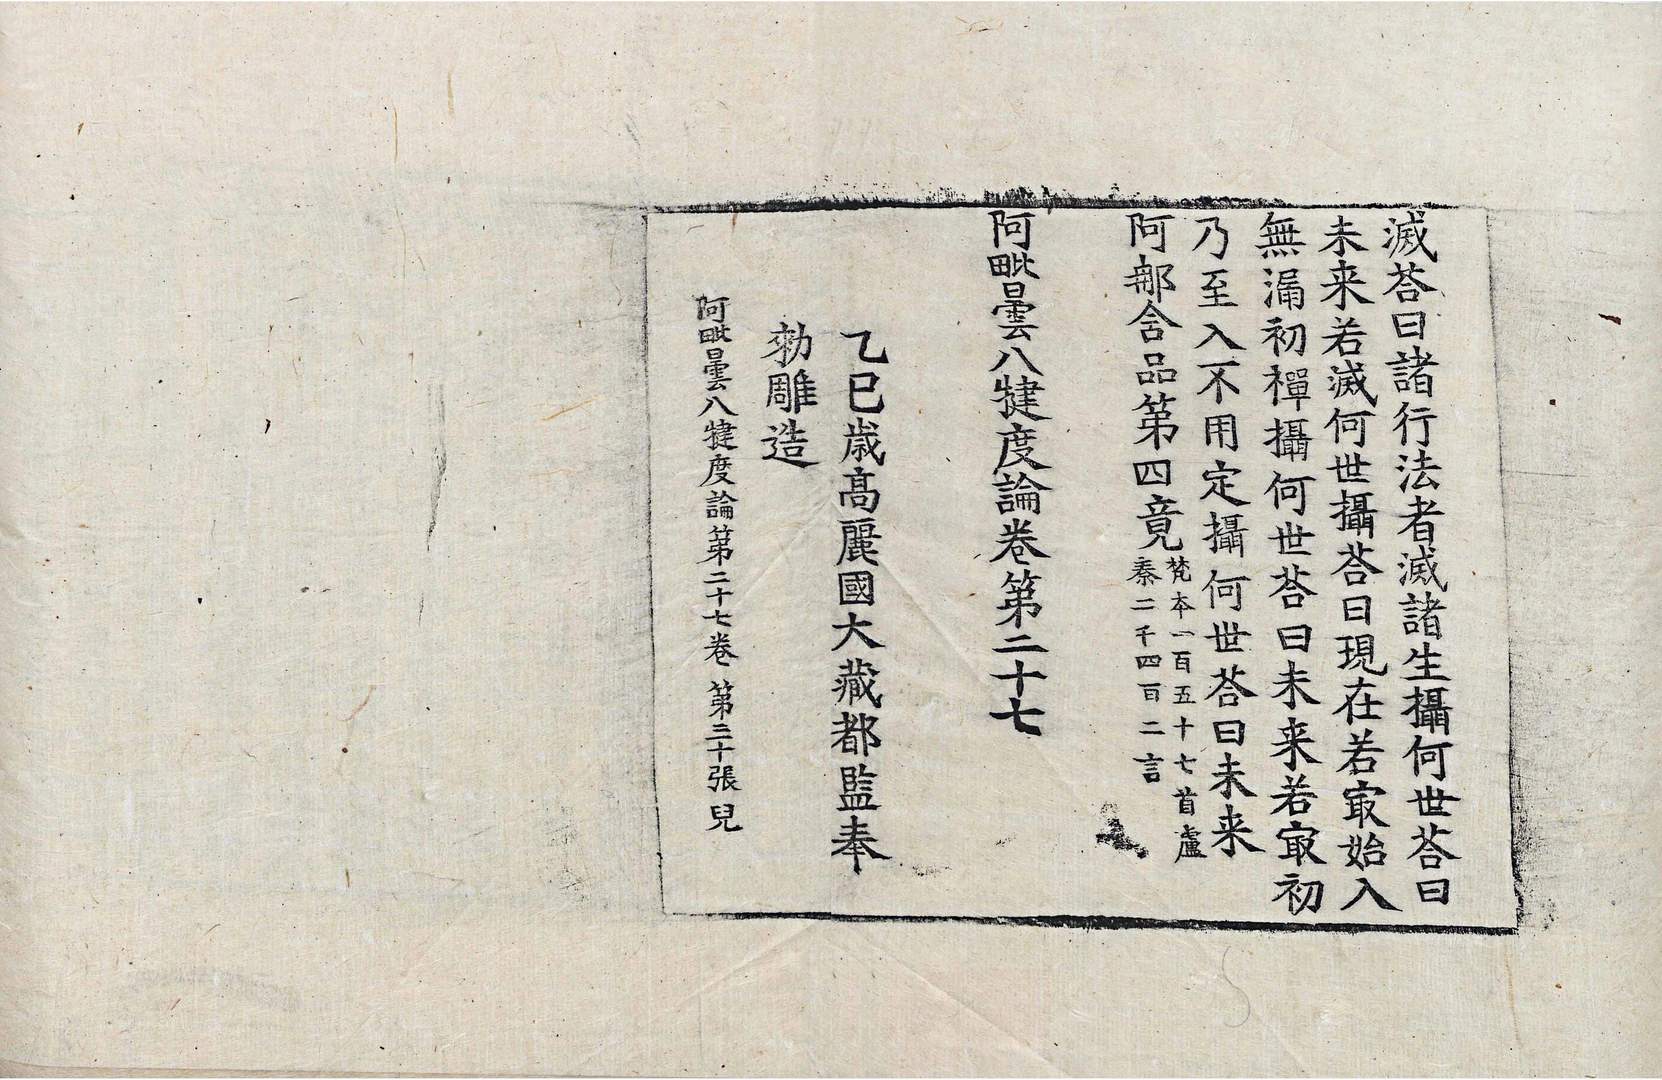 滅荅曰諸行法者滅諸生攝何世荅曰
未来若滅何世攝荅曰現在若㝡始入
無漏初禪攝何世荅曰未来若㝡初
乃至入不用定攝何世荅曰未来
阿𨚗含品第四竟
梵本一百五十七首盧
秦二千四百二言
阿毗曇八犍度論卷第二十七
乙巳歲高麗國大藏都監奉
勑雕造
阿毗曇八犍度論第二十七卷 第三十張 兒